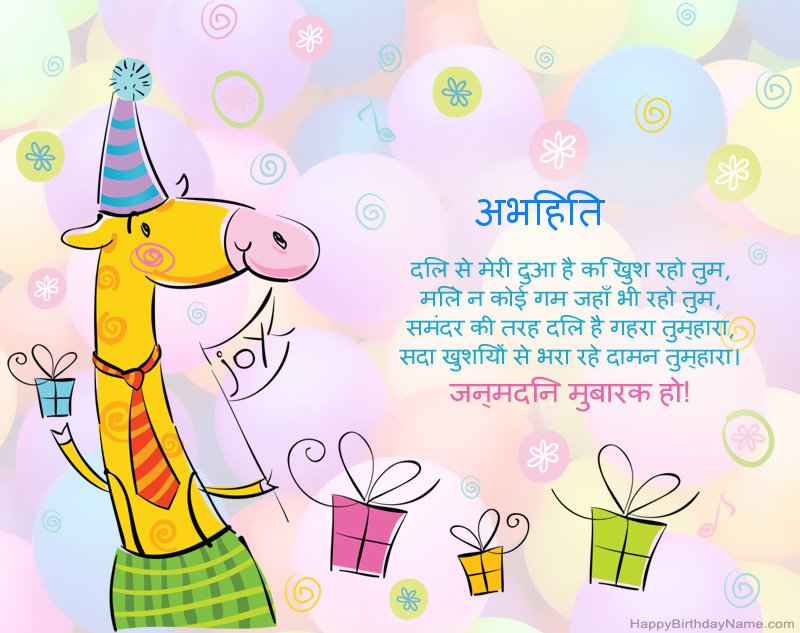 अभहिति
दलि से मेरी दुआ है कि खुश रहो तुम,
मलिे न कोई गम जहाँ भी रहो तुम,
समंदर की तरह दलि है गहरा तुम्‌हारा,
सदा खुशयिों से भरा रहे दामन तुम्‌हारा।
जन्‌मदनि मुबारक हो!
joy
HappyBirthdayName.com